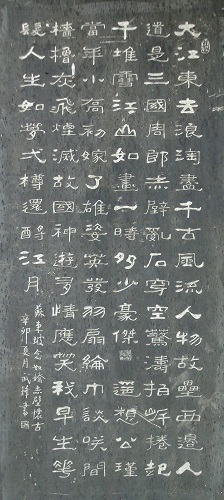 大江東去浪淘盡千古風流人物故壘西邊人
道是三國周郎赤壁亂石穿空驚濤拍岸捲起
千堆雪江山如畫一時多少豪傑遥想公瑾
當年小喬初嫁了雄姿英發羽扇綸巾談咲間
檣櫓灰飛煙滅故國神遊多情應笑我早生華
髮人生如夢弌樽還酹江月
蘇東坡念奴嬌赤壁懷古
辛卯夏月書